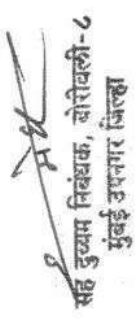 सह दुय्यम निबंधक, बोरीवली-८
मुंबई उपनगर जिल्हा